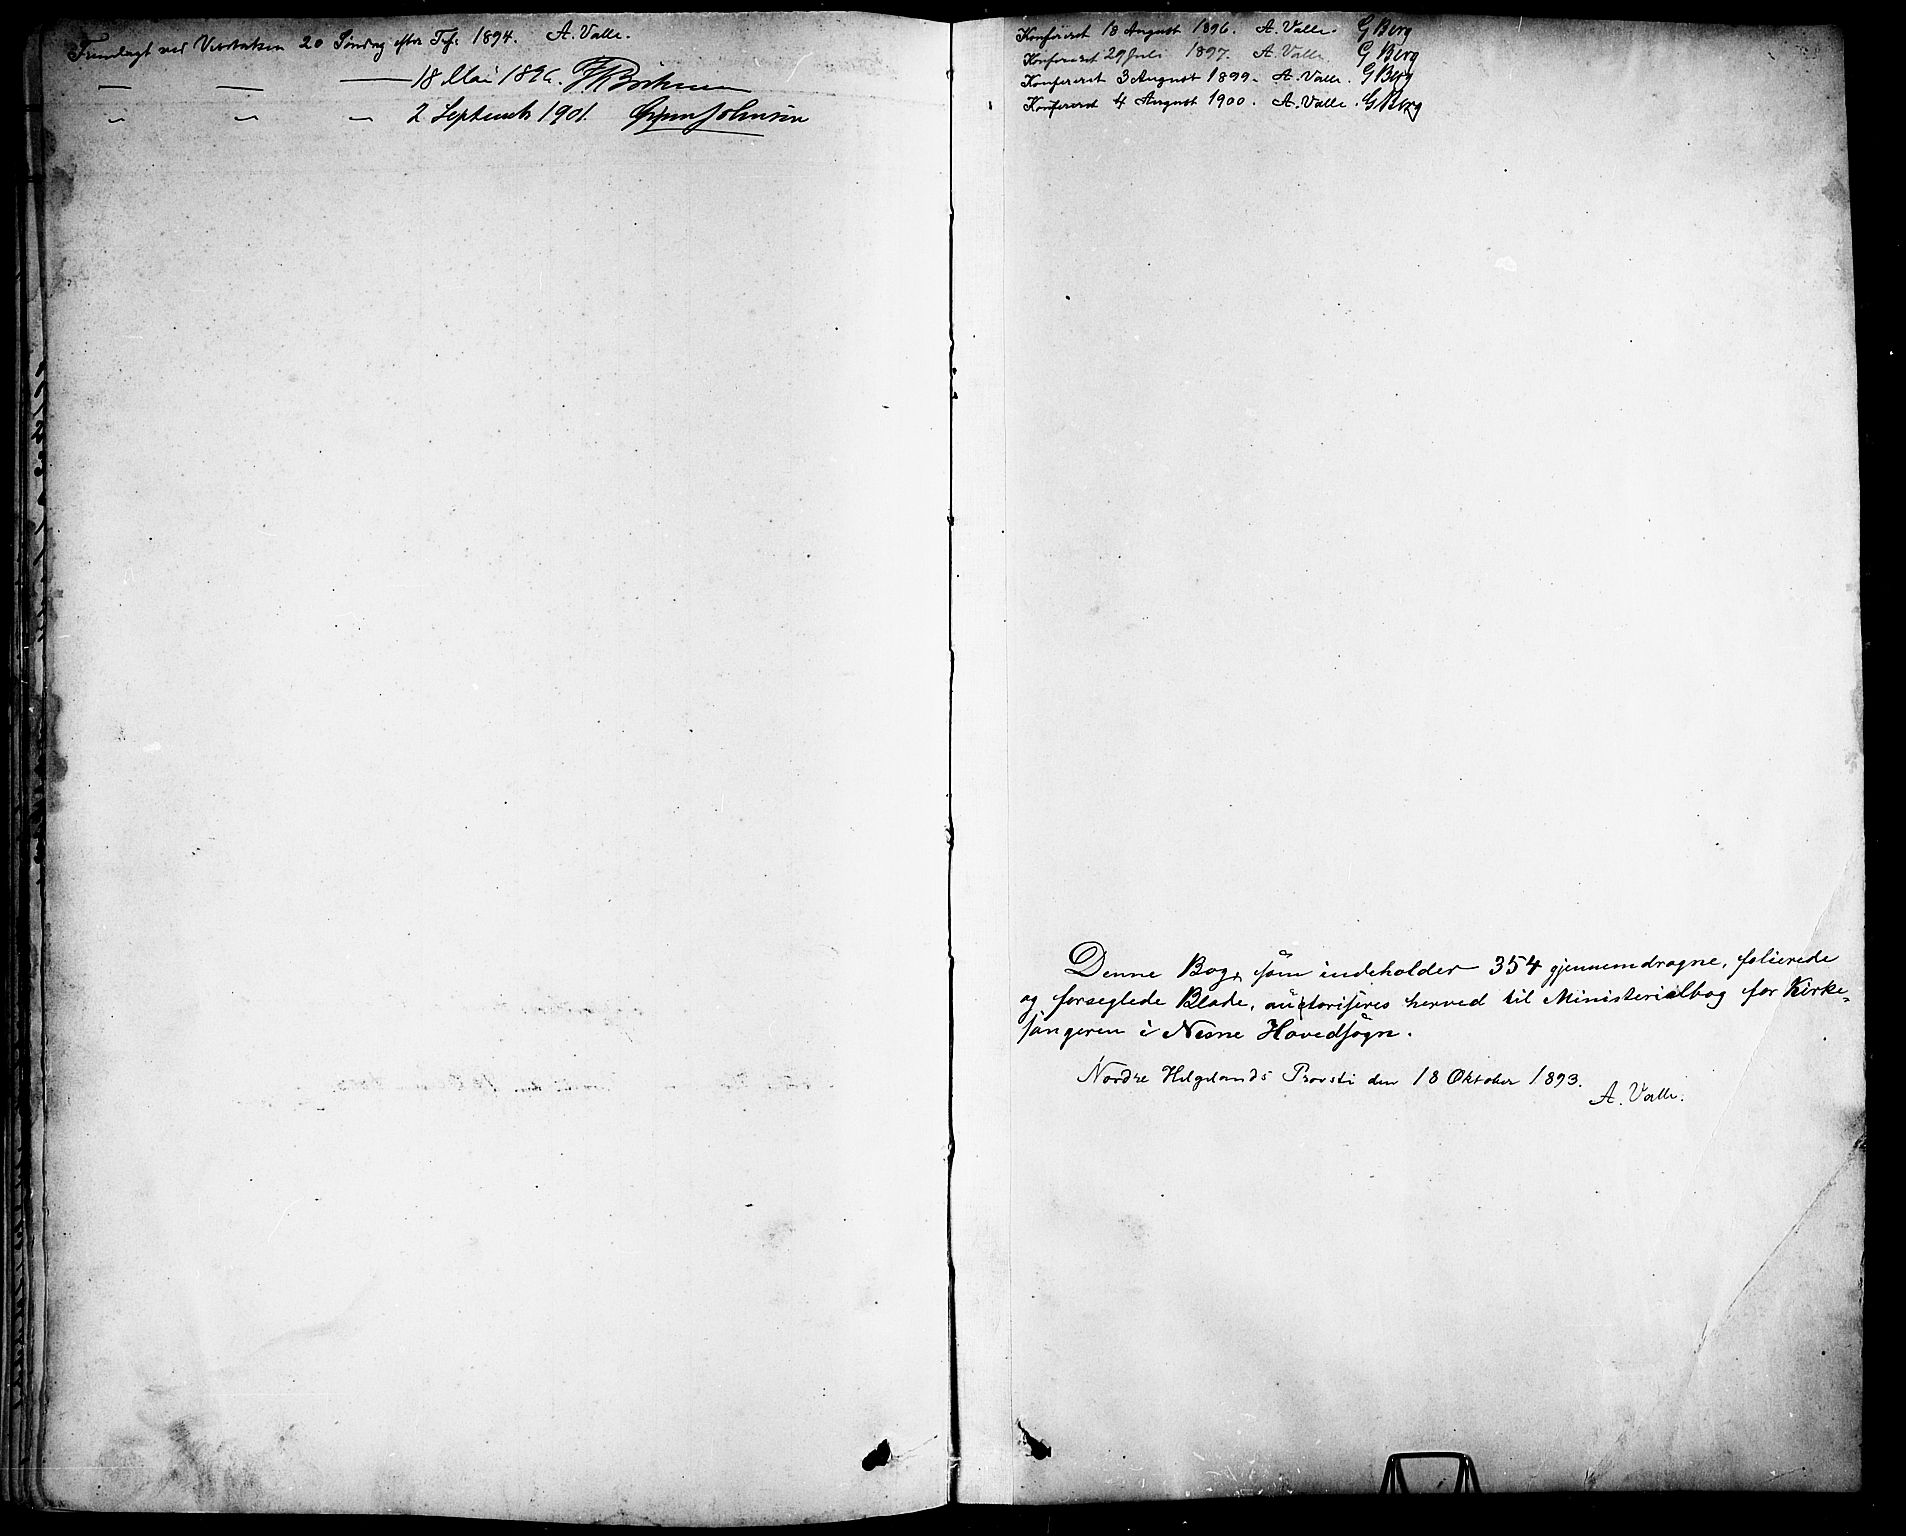 Fremlagt ved Visitatsen 20 Søndag efter Tref: 1894. A. Valle.
— — — 18 Mai 1896. JNBöckman
" " — 2 Septemb 1901. Johnsen
Konfereret 18 August 1896. A. Valle. G Berg
Konfereret 29 Juli 1897. A. Valle G Berg
Konfereret 3 August 1899. A. Valle. G Berg
Konfereret 4 August 1900. A. Valle. G Berg
Denne Bog, som indeholder 354 gjennemdragne, folierede
og forseglede Blade, auctoriseres herved til Ministerialbog for Kirke=
sangeren i Nesne Hovedsogn.
Nordre Helgelands Provsti den 18 Oktober 1893.
A. Valle.